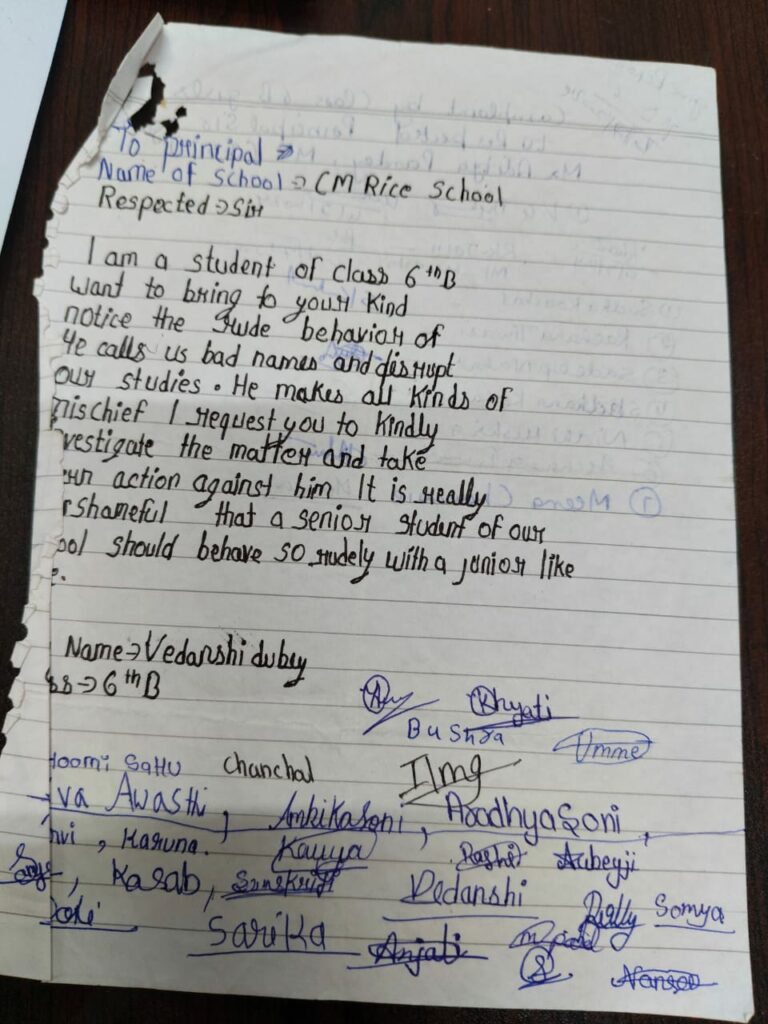 To principal →
Name of school → CM Rice School
Respected → Sir
I am a student of class 6th B
want to bring to your kind
notice the rude behavior of
He calls us bad names and disrupt
our studies. He makes all kinds of
mischief I request you to kindly
vestigate the matter and take
ern action against him It is really
rshameful that a senior student of our
ool should behave so rudely with a junior like
e.
Name → Vedanshi dubey
ss → 6th B
Khyati
Bushra Umme
hoomi Sahu Chanchal Ilma
va Awasthi, Ankika Soni, Aradhya Soni,
hvi, Karuna. Kavya
Kasab, Sanskriti Vedanshi Somya
Sarika Anjali
S